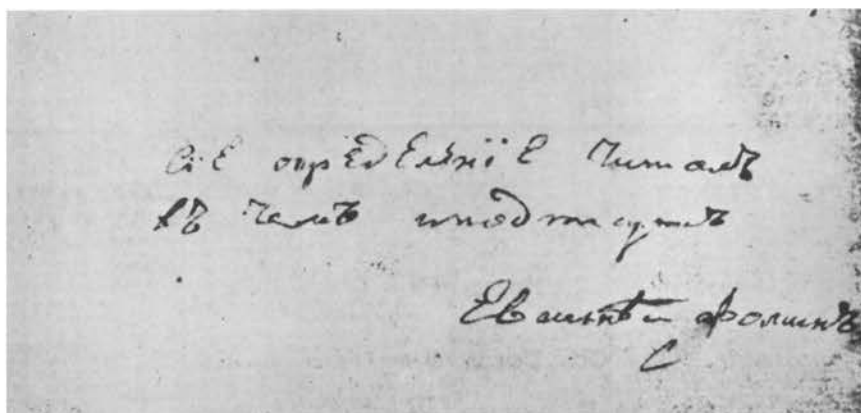 сiе определенiе читалъ
въ чемъ иподписуюсъ
Евстнѣй Фоминъ